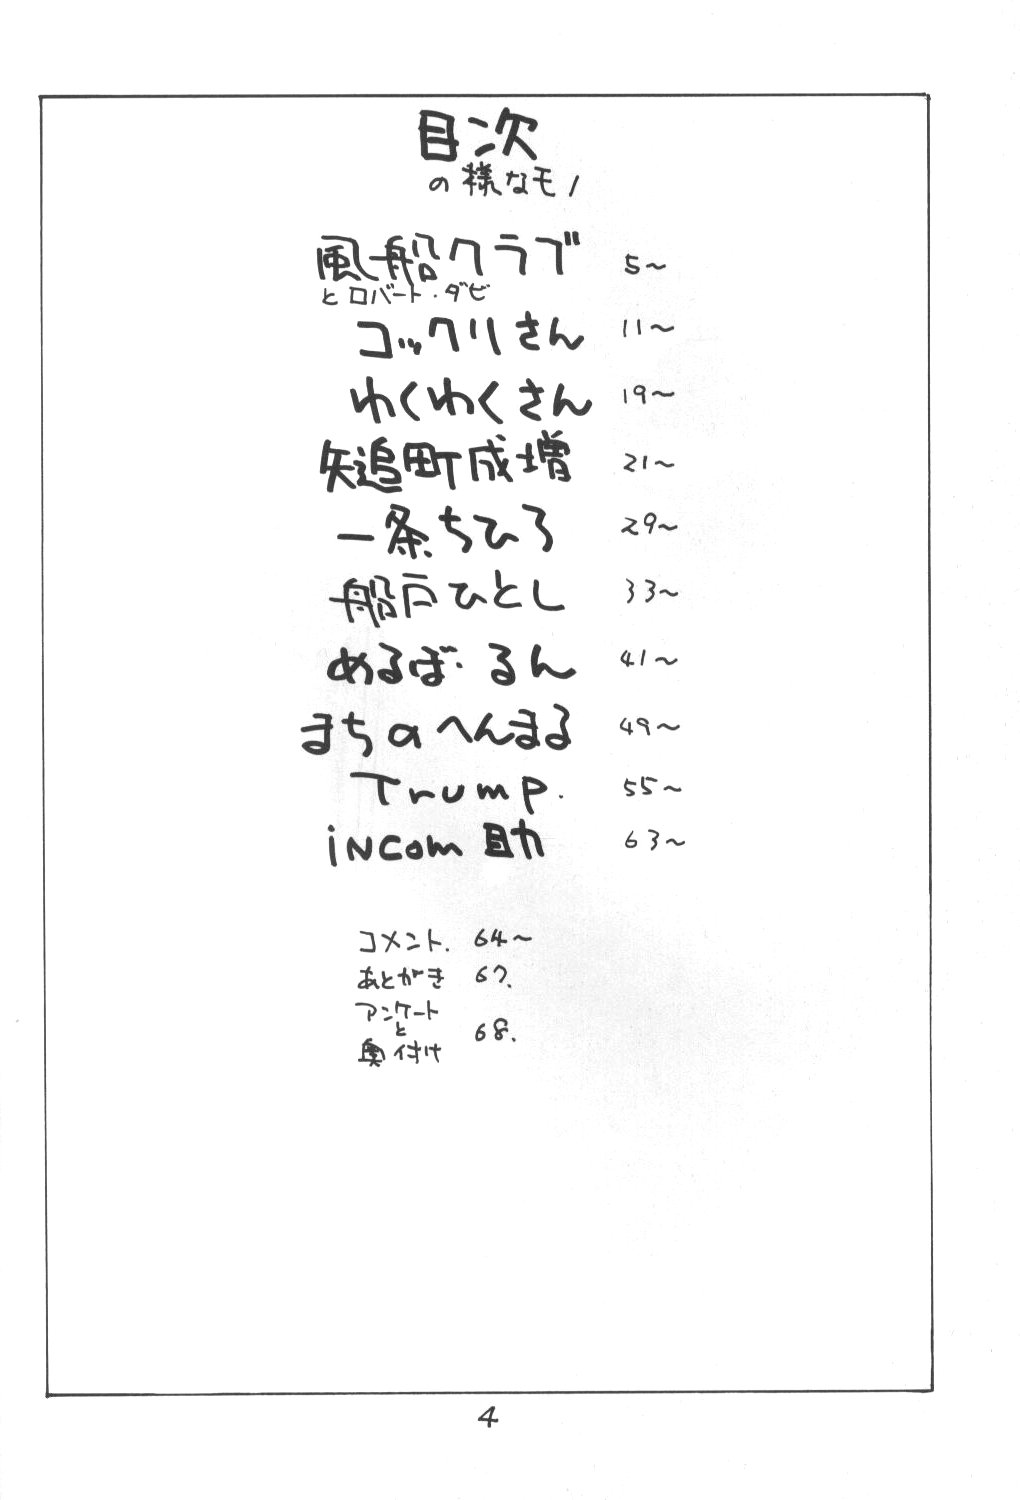 目次
の様なモノ
風船クラブ 5〜
とロバート・ダビ
コックリさん 11〜
わくわくさん 19〜
矢追町成増 21〜
一条ちひろ 29〜
船戸ひとし 33〜
めるぼ・るん 41〜
まちのへんまる 49〜
Trump. 55〜
iNCom 助 63〜
コメント. 64〜
あとがき 67.
アンケート
と 68.
奥付け
4